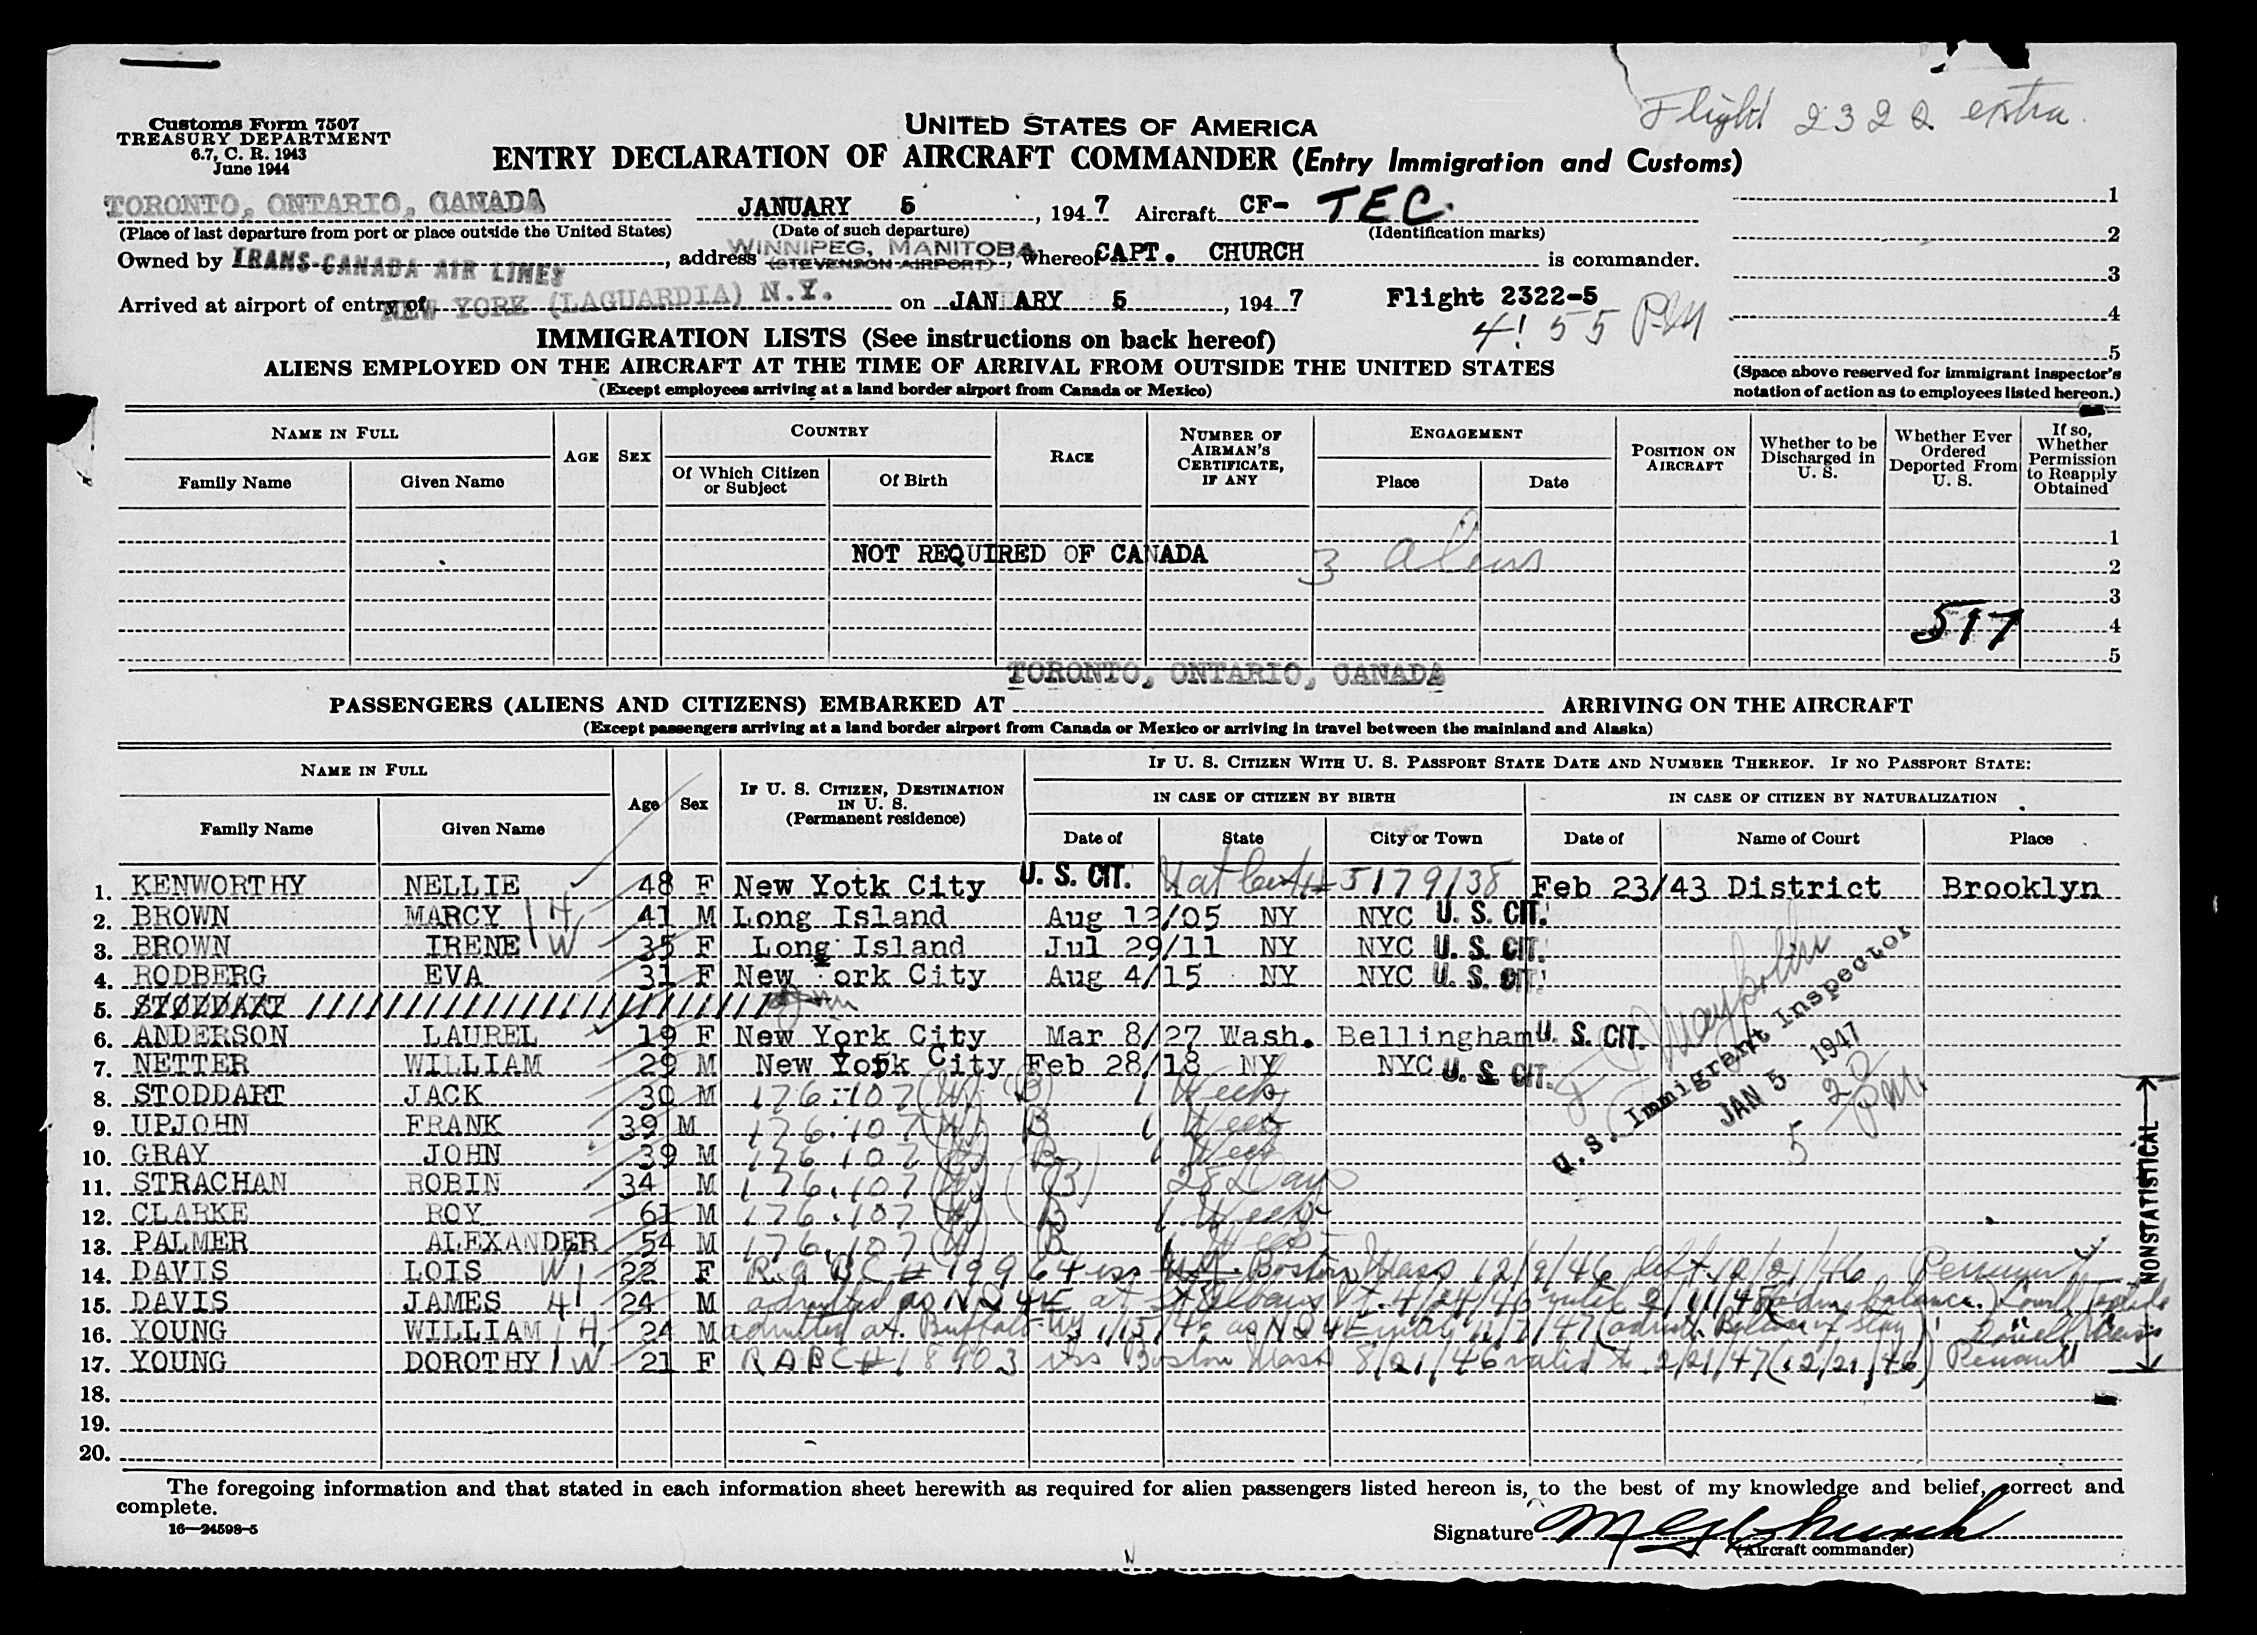 Flight 2322 extra
Customs Form 7507
TREASURY DEPARTMENT
6.7, C. R. 1943
June 1944
UNITED STATES OF AMERICA
ENTRY DECLARATION OF AIRCRAFT COMMANDER (Entry Immigration and Customs)
TORONTO, ONTARIO, CANADA JANUARY 5, 1947 Aircraft CF- TEC
(Place of last departure from port or place outside the United States) (Date of such departure) (Identification marks)
Owned by TRANS-CANADA AIR LINES, address WINNIPEG, MANITOBA (STEVENSON AIRPORT), whereof CAPT. CHURCH is commander.
Arrived at airport of entry of NEW YORK (LAGUARDIA) N.Y. on JAN ARY 5, 1947 Flight 2322-5
4:55 PM
1
2
3
4
5
(Space above reserved for immigrant inspector's
notation of action as to employees listed hereon.)
IMMIGRATION LISTS (See instructions on back hereof)
ALIENS EMPLOYED ON THE AIRCRAFT AT THE TIME OF ARRIVAL FROM OUTSIDE THE UNITED STATES
(Except employees arriving at a land border airport from Canada or Mexico)
NAME IN FULL AGE SEX COUNTRY RACE NUMBER OF AIRMAN'S CERTIFICATE, IF ANY ENGAGEMENT POSITION ON AIRCRAFT Whether to be Discharged in U. S. Whether Ever Ordered Deported From U. S. If so, Whether Permission to Reapply Obtained
Family Name Given Name Of Which Citizen or Subject Of Birth Place Date
1
NOT REQUIRED OF CANADA 3 aliens 2
3
517 4
5
TORONTO, ONTARIO, CANADA
PASSENGERS (ALIENS AND CITIZENS) EMBARKED AT ARRIVING ON THE AIRCRAFT
(Except passengers arriving at a land border airport from Canada or Mexico or arriving in travel between the mainland and Alaska)
NAME IN FULL Age Sex IF U. S. CITIZEN, DESTINATION IN U. S. (Permanent residence) IF U. S. CITIZEN WITH U. S. PASSPORT STATE DATE AND NUMBER THEREOF. IF NO PASSPORT STATE:
IN CASE OF CITIZEN BY BIRTH IN CASE OF CITIZEN BY NATURALIZATION
Family Name Given Name Date of State City or Town Date of Name of Court Place
1. KENWORTHY NELLIE 48 F New Yotk City U. S. CIT. Nat Cert # 5179138 Feb 23/43 District Brooklyn
2. BROWN MARCY H 41 M Long Island Aug 12/05 NY NYC U. S. CIT.
3. BROWN IRENE W 35 F Long Island Jul 29/11 NY NYC U. S. CIT.
4. RODBERG EVA 31 F New ork City Aug 4/15 NY NYC U. S. CIT.
5. STODDART ////////////////////////
6. ANDERSON LAUREL 19 F New York City Mar 8/27 Wash. Bellingham U. S. CIT.
7. NETTER WILLIAM 29 M New York City Feb 28/18 NY NYC U. S. CIT.
U.S. Immigrant Inspector
JAN 5 1947
5 20 PM.
8. STODDART JACK 30 M 176.107 (H) (B) 1 Week
9. UPJOHN FRANK 39 M 176.107 (H) B 1 Week
10. GRAY JOHN 39 M 176.107 (H) B 1 Week
11. STRACHAN ROBIN 34 M 176.107 (H) (B) 28 Days
12. CLARKE ROY 61 M 176.107 (H) B 1 Week
13. PALMER ALEXANDER 54 M 176.107 (H) B 1 Week
14. DAVIS LOIS W 22 F R.A BC # 19964 iss Boston Mass 12/9/46 left 12/21/46
15. DAVIS JAMES H 24 M admitted as NQ 4E at St Albans Vt.
16. YOUNG WILLIAM H 24 M admitted at Buffalo NY 1/15/46 as NQ 4E until 11/7/47
17. YOUNG DOROTHY W 21 F RABC # 18903 iss Boston Mass 8/21/46 valid to 2/21/47 (12/21/46)
NONSTATISTICAL
18.
19.
20.
The foregoing information and that stated in each information sheet herewith as required for alien passengers listed hereon is, to the best of my knowledge and belief, correct and
complete.
16—24598-5
Signature
(Aircraft commander)